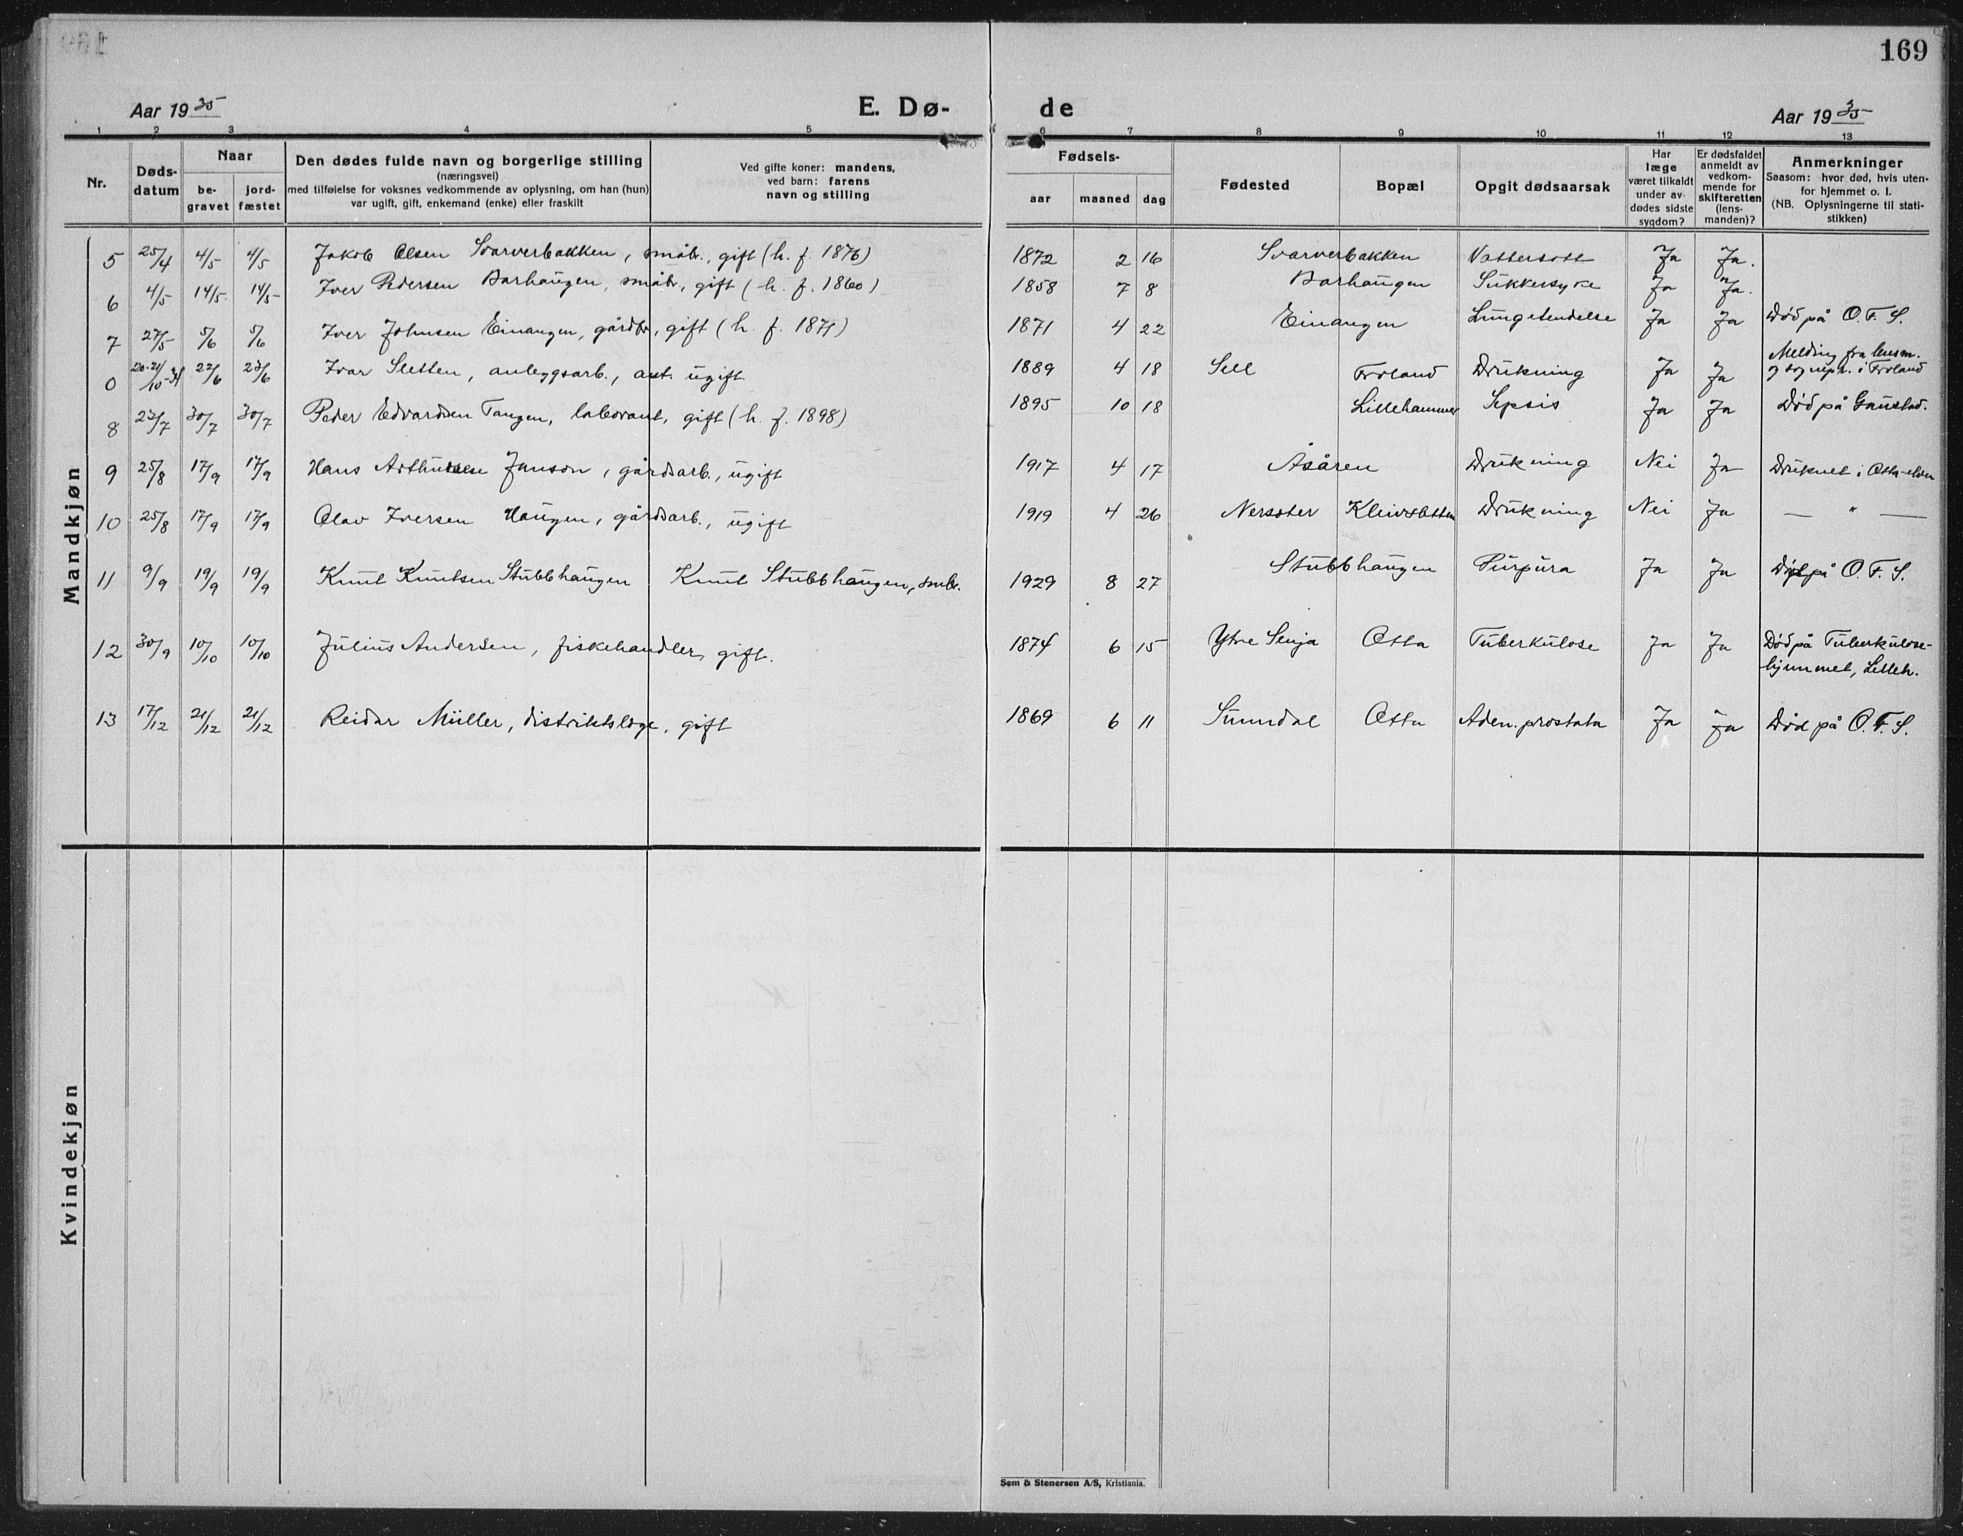 169
Aar 1935 E. Dø- de Aar 1935
1 2 3 4 5 6 7 8 9 10 11 12 13
Nr. Døds-datum Naar be-gravet jord-fæstet Den dødes fulde navn og borgerlige stilling (næringsvei) med tilføielse for voksnes vedkommende av oplysning, om han (hun) var ugift, gift, enkemand (enke) eller fraskilt Ved gifte koner: mandens, ved barn: farens navn og stilling Fødsels- aar maaned dag Fødested Bopæl Opgit dødsaarsak Har læge været tilkaldt under av-dødes sidste sygdom? Er dødsfaldet anmeldt av vedkom-mende for skifteretten (lens-manden)? Anmerkninger Saasom: hvor død, hvis uten-for hjemmet o. l. (NB. Oplysningerne til stati-stikken)
Mandkjøn
5 25/4 4/5 4/5 Jakob Olsen Svarverbakken, småbr., gift (h. f. 1876) 1872 2 16 Svarverbakken Vattersott Ja Ja.
6 4/5 14/5 14/5 Iver Pedersen Barhaugen, småbr., gift (h. f. 1860) 1858 7 8 Barhaugen Sukkersyke Ja Ja.
7 27/5 5/6 5/6 Iver Johnsen Einangen, gårdbr., gift (h. f. 1871) 1871 4 22 Einangen Lungebendelse Ja Ja Død på O. F. S.
0 20-21/10-34 22/6 23/6 Ivar Sletten, anleggsarb., ant. ugift 1889 4 18 Sell Froland Drukning Ja Ja Melding fra lensm. og sognepr. i Froland
8 23/7 30/7 30/7 Peder Edvardsen Tangen, laborant, gift (h. f. 1898) 1895 10 18 Lillehammer Sepsis Ja Ja Død på Gaustad.
9 25/8 17/9 17/9 Hans Arthur Janson, gårdsarb., ugift 1917 4 17 Åsåren Drukning Nei Ja Druknet i Otta-elven
10 25/8 17/9 17/9 Olav Iversen Haugen, gårdsarb., ugift 1919 4 26 Nerseter Kleivsletten Drukning Nei Ja — " —
11 9/9 19/9 19/9 Knut Knutsen Stubbhaugen Knut Stubbhaugen, smbr. 1929 8 27 Stubbhaugen Purpura Ja Ja Død på O. F. S.
12 30/9 10/10 10/10 Julius Andersen, fiskehandler, gift. 1874 6 15 Ytre Senja Otta Tuberkulose Ja Ja Død på Tuberkulose-hjemmet, Lilleh.
13 17/12 21/12 21/12 Reidar Müller, distriktslege, gift 1869 6 11 Sunndal Otta Aden. prostata Ja Ja Død på O. F. S.
Kvindekjøn
Sem & Stenersen A/S, Kristiania.